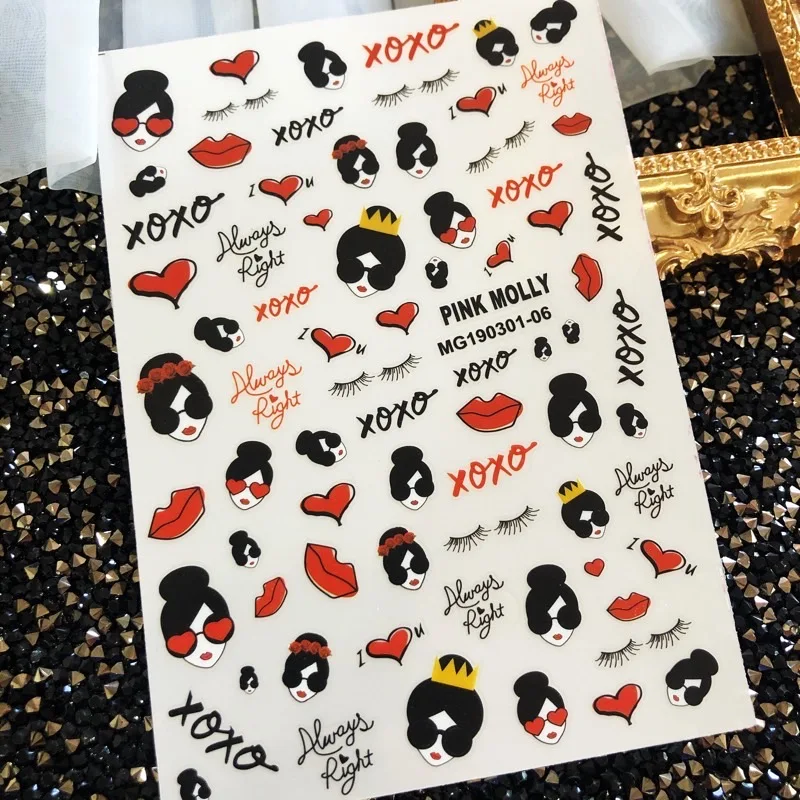 xoxo
Always
Right
I u
xoxo
I u
xoxo
xoxo
xoxo
Always
Right
I u
xoxo
PINK MOLLY
MG190301-06
I u
xoxo
xoxo
Always
Right
xoxo
xoxo
Always
Right
I u
Always
Right
I u
xoxo
Always
Right